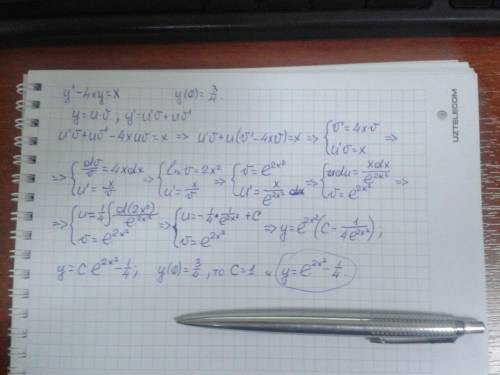 y' - 4xy = x    y(0) = 3/4.
y = u·v ; y' = u'v + uv'
u'v + uv' - 4xuv = x => u'v + u(v' - 4xv) = x => { v' = 4xv ; u'v = x =>
=> { dv/v = 4xdx ; u' = x/v => { ln v = 2x² ; u' = x/v => { v = e^{2x²} ; u' = x/e^{2x²} => { du = xdx/e^{2x²} ; v = e^{2x²} =>
=> { u = 1/4 ∫ d(2x²)/e^{2x²} ; v = e^{2x²} => { u = -1/4 · 1/e^{2x²} + C ; v = e^{2x²} => y = e^{2x²}(C - 1/(4e^{2x²})) ;
y = C e^{2x²} - 1/4 ; y(0) = 3/4, то C = 1 и y = e^{2x²} - 1/4
UZTELECOM